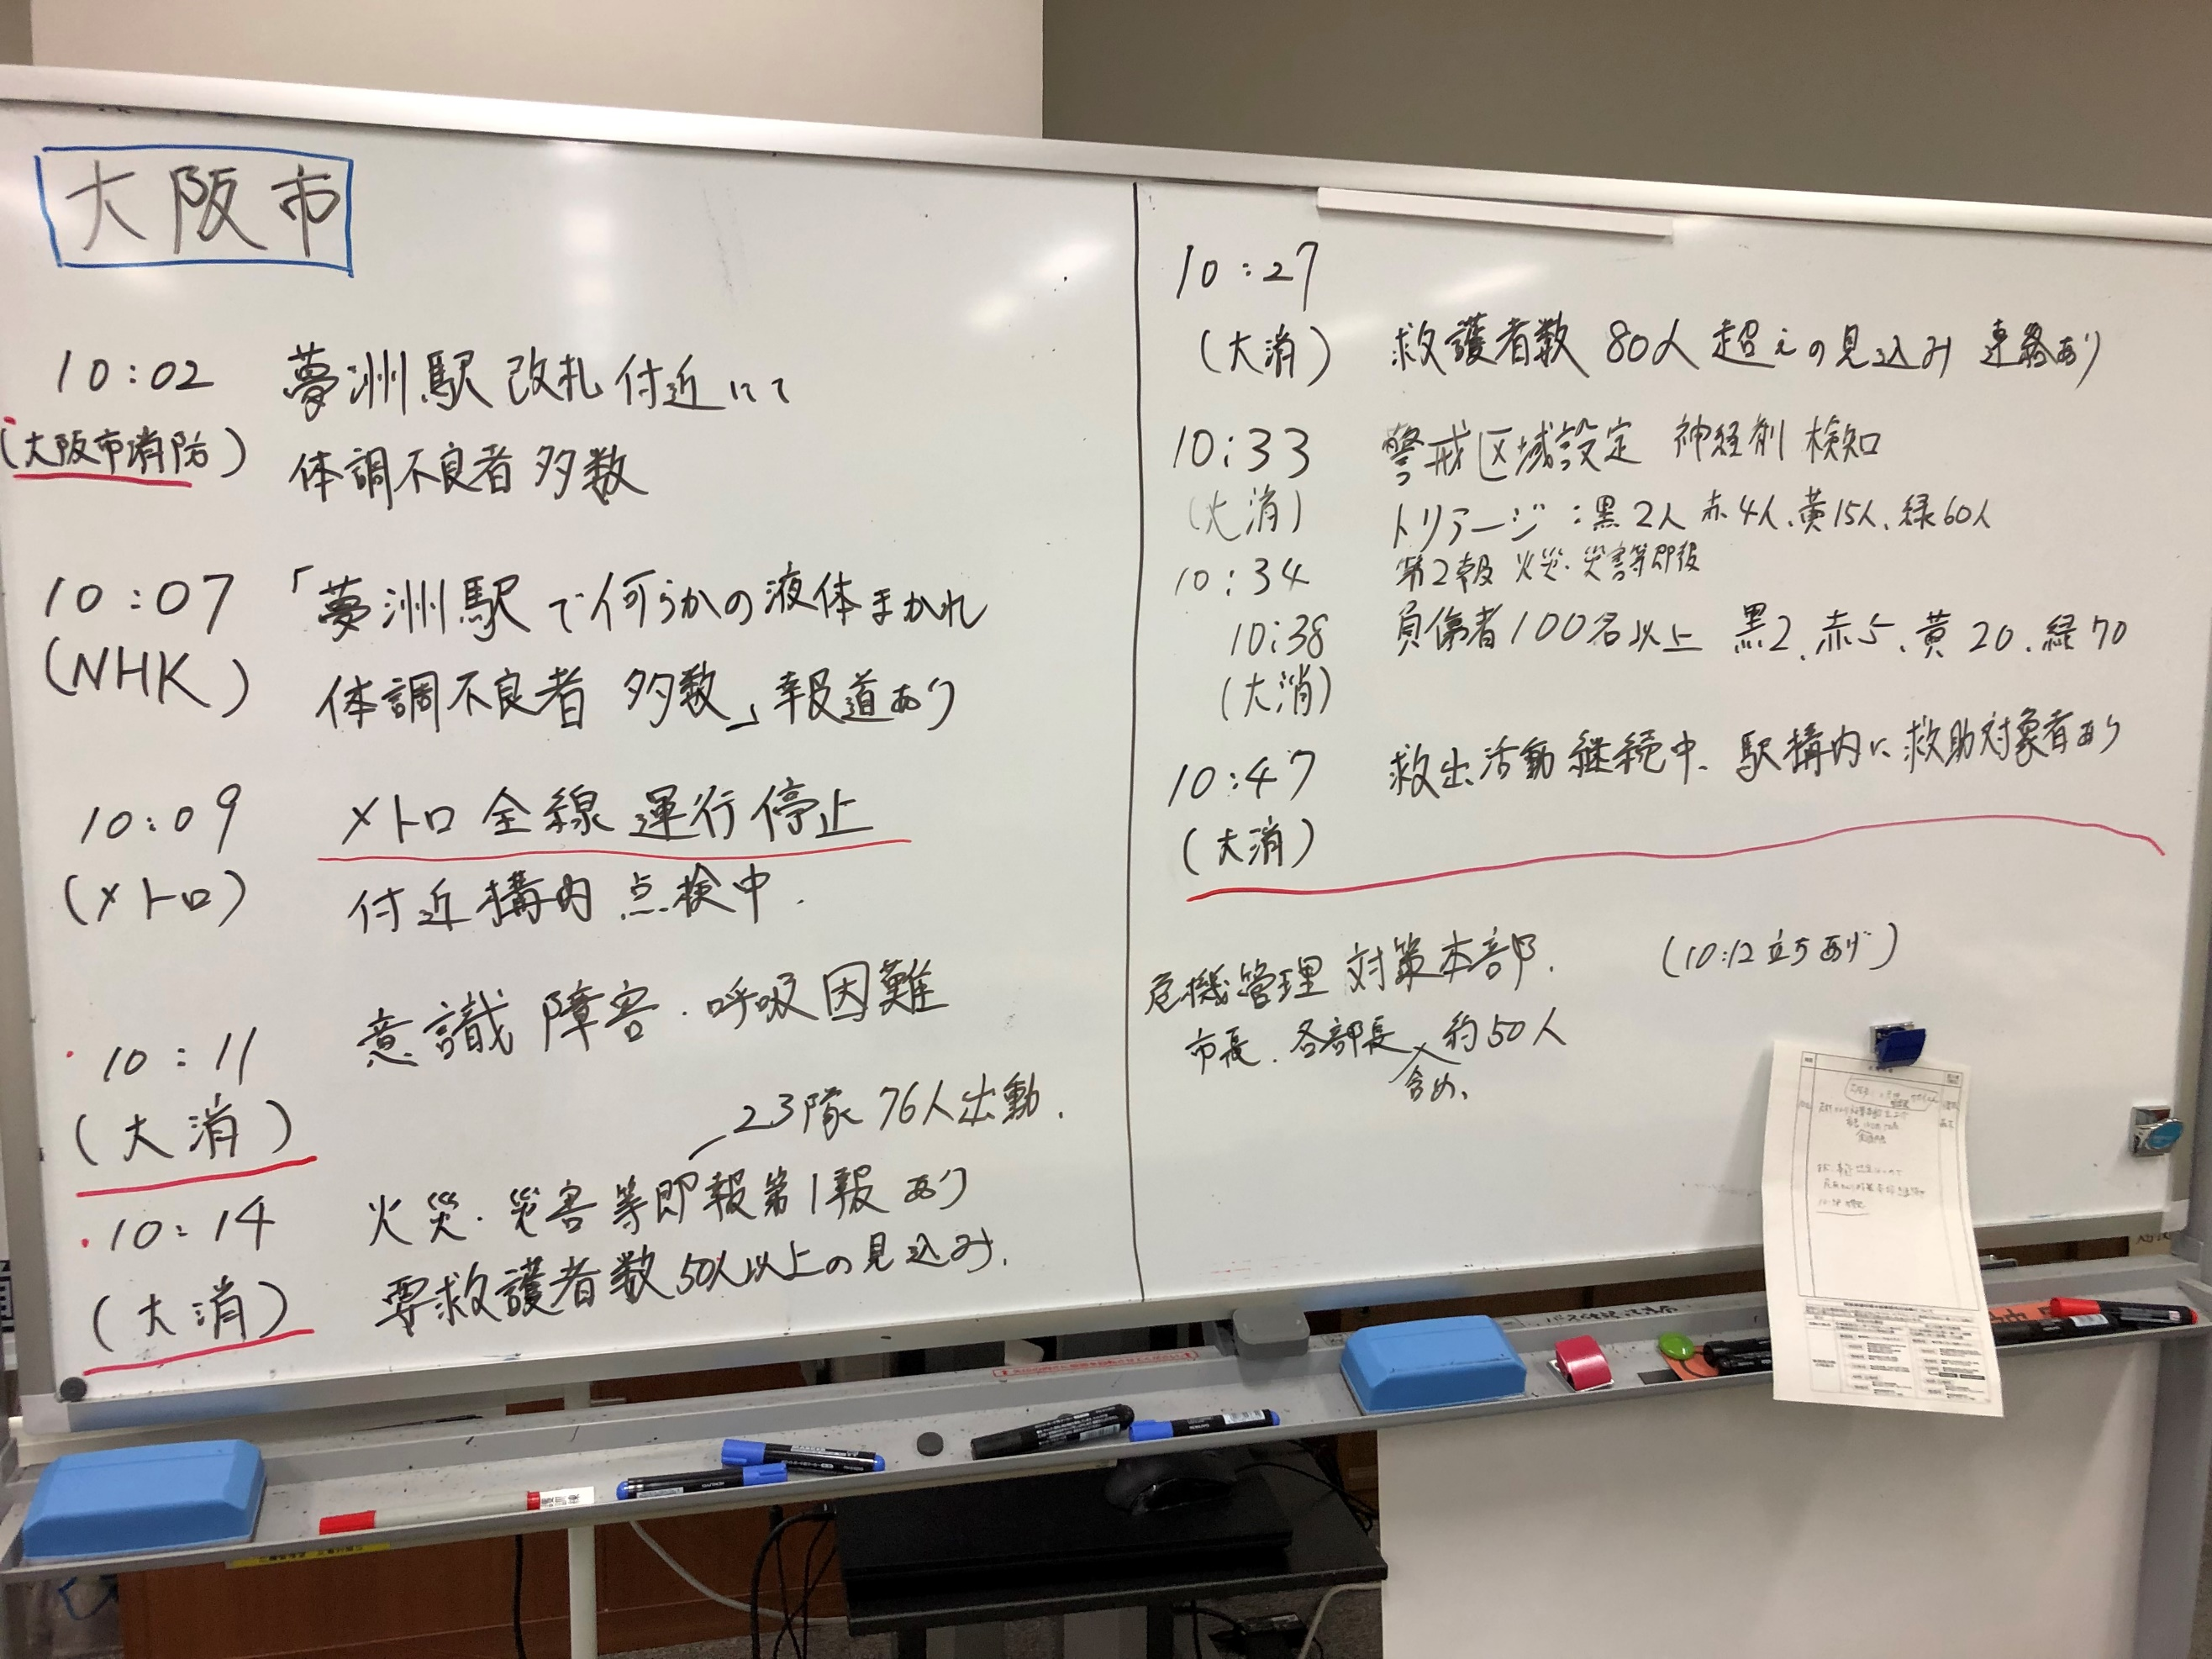 大阪市
10:02 夢洲駅改札付近にて
(大阪市消防) 体調不良者多数
10:07 「夢洲駅で何らかの液体まかれ
(NHK) 体調不良者 多数」報道あり
10:09 メトロ全線運行停止
(メトロ) 付近構内点検中.
10:11 意識障害・呼吸困難
(大消)
23隊 76人出動.
10:14 火災・災害等即報第1報あり
(大消) 要救護者数50人以上の見込み.
10:27
(大消) 救護者数 80人超えの見込み 連絡あり
10:33 警戒区域設定 神経剤検知
(大消) トリアージ:黒2人 赤4人、黄15人、緑60人
10:34 第2報 火災・災害等即報
10:38 負傷者100名以上 黒2、赤5、黄20、緑70
(大消)
10:47 救出活動継続中、駅構内に救助対象者あり
(大消)
危機管理対策本部. (10:12立ちあげ)
市長.各部長 約50人
含め、